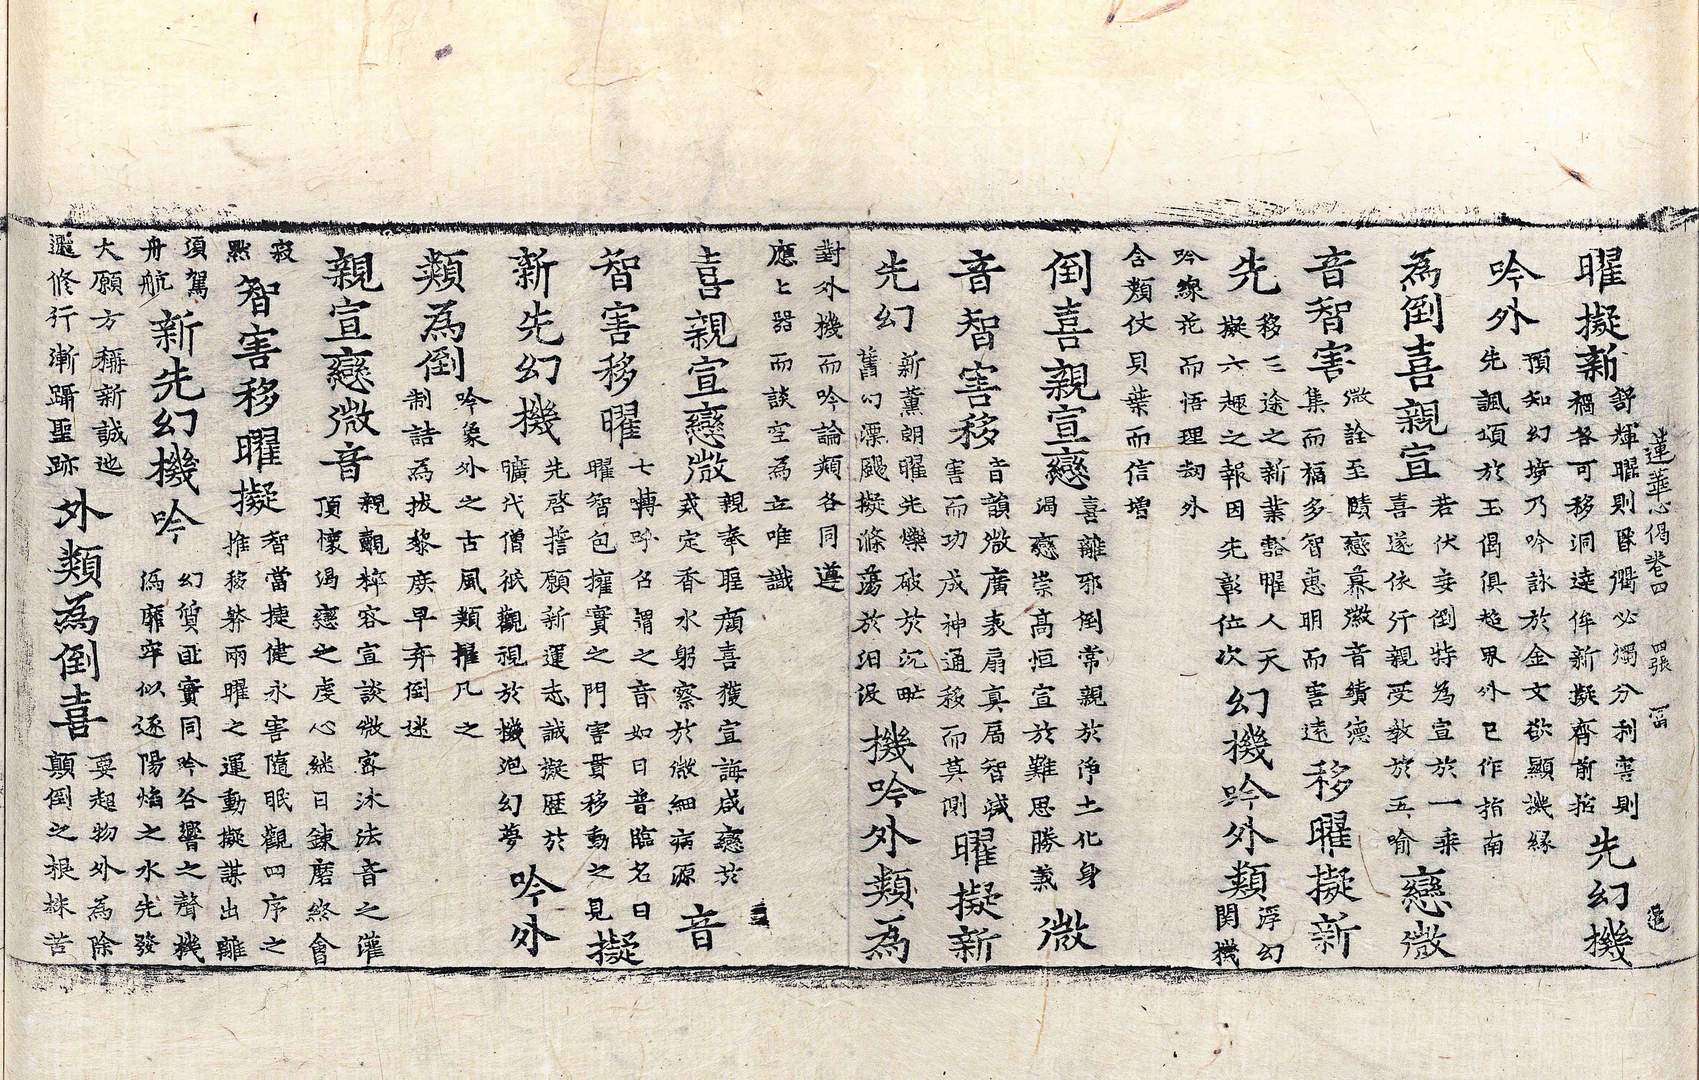 蓮華心偈卷四 四張
曜擬新 舒輝曜則昏衢必燭分利害則 先幻機
禍各可移洞達侔新擬齊前指
吟外 預知幻境乃吟詠於金文欲顯機緣
先諷頌於玉偈俱超界外已作指南
為倒喜親宣 若伏妄倒特為宣於一乘 戀微
喜遂依行親受教於五喻
音智害 微詮至賾戀慕微音績德 移曜擬新
集而福多智惠明而害遠
先 移三途之新業豁曜人天 幻機吟外類 浮幻
擬六趣之報因先彰位次 関機
吟線花而悟理劫外
含類仗貝葉而信增
倒喜親宣戀 喜離邪倒常親於淨土化身 微
渴戀崇高恒宣於難思勝義
音智害移 音韻微廣表扇真扃智滅 曜擬新
害而功成神通移而莫測
先幻 新薰朗曜先爍破於沉 機吟外類為
舊幻漂颺擬滌蕩於汩没
對外機而吟論類各同遵
應〻器而談空為立唯識
喜親宣戀微 親奉聖顏喜獲宣誨咸戀於 音
戒定香水躬察於微細病源
智害移曜 七轉呼召謂之音如日普臨名曰 擬
曜智包擁實之門害貫移動之見
新先幻機 先啓誓願新運志誠擬歷於 吟外
曠代僧祇觀視於機泡幻夢
類為倒 吟象外之古風類擢凡之
制詰為拔黎庶早弃倒迷
親宣戀微音 親覩粹容宣談微密沐法音之灌
頂懷渴戀之虔心継日鍊磨終會
寂
默 智害移曜擬 智當捷健永害隨眠觀四序之
推移莽兩曜之運動擬謀出離
須駕
舟航 新先幻機吟 幻質匪實同吟谷響之聲機
為靡寧似逐陽焰之水先發
大願方稱新誠 外類為倒喜 要超物外為除
遐修行漸躡聖跡 顛倒之根株苦